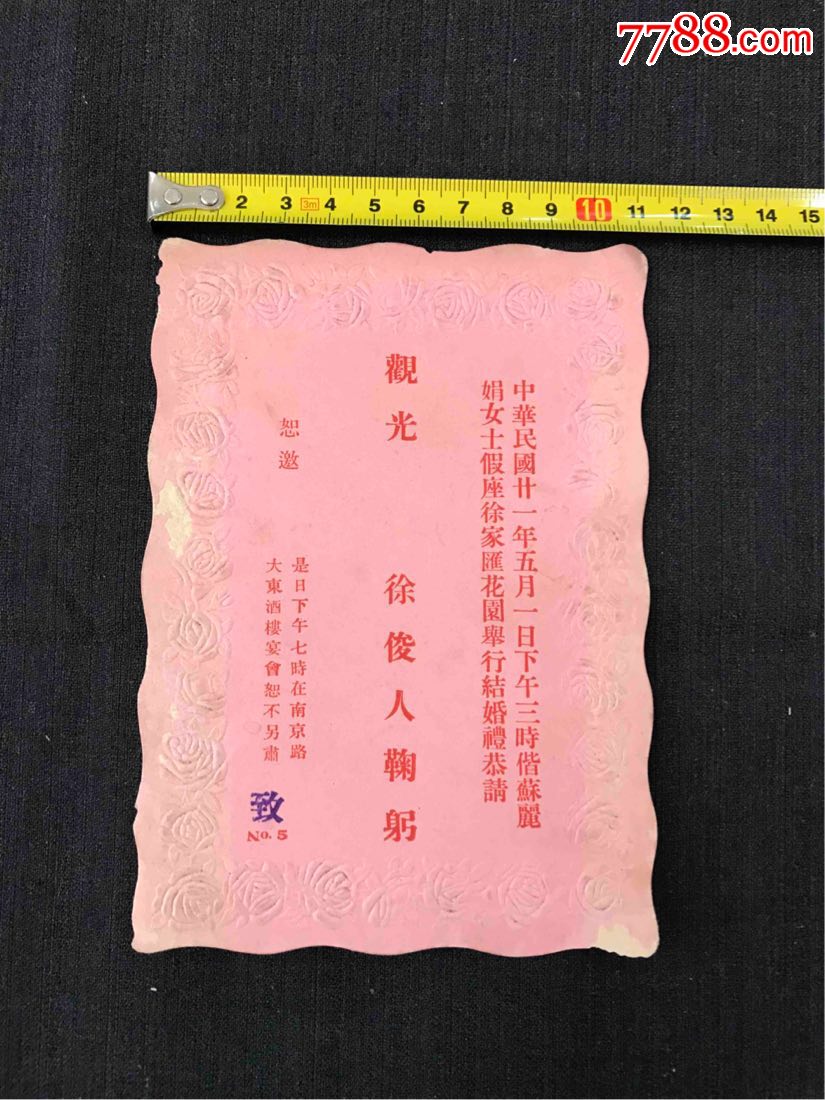 7788.com
2 3 3m 4 5 6 7 8 9 10 11 12 13 14 15
中華民國廿一年五月一日下午三時偕蘇麗
娟女士假座徐家匯花園舉行結婚禮恭請
觀光 徐俊人鞠躬
恕邀
是日下午七時在南京路
大東酒樓宴會恕不另肅
致
No. 5